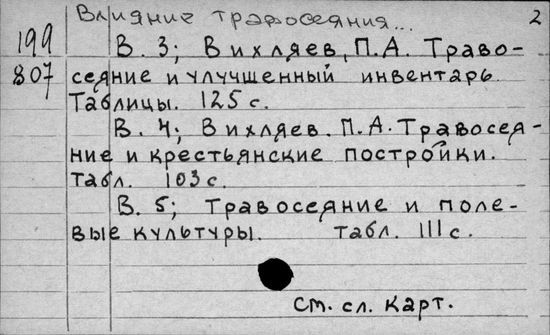 Влияние травосеяния... 2
199 В. 3; Вихляев, П.А. Траво-
807 сеяние и улучшенный инвентарь.
Таблицы. 125 с.
В. 4; Вихляев. П.А. Травосея-
ние и крестьянские постройки.
Табл. 103 с.
В. 5; Травосеяние и поле-
вые культуры. Табл. 111 с.
См. сл. карт.